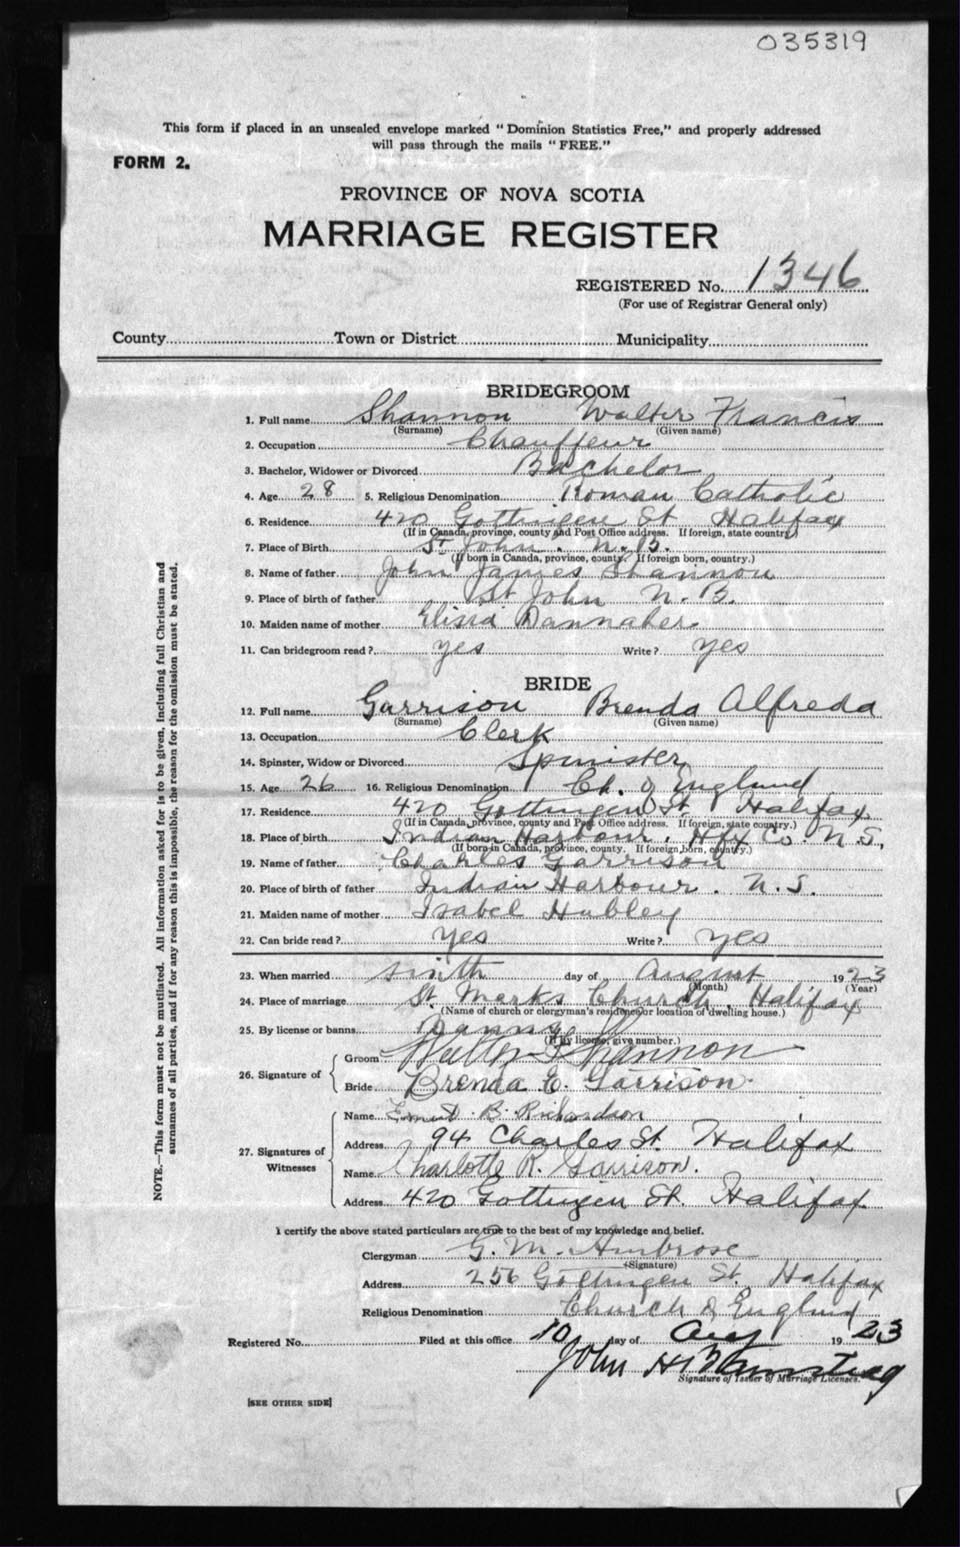 035319
This form if placed in an unsealed envelope marked "Dominion Statistics Free," and properly addressed
will pass through the mails "FREE."
FORM 2.
PROVINCE OF NOVA SCOTIA
MARRIAGE REGISTER
REGISTERED No. 1346
(For use of Registrar General only)
County Town or District Municipality
BRIDEGROOM
1. Full name Shannon Walter Francis
(Surname) (Given name)
2. Occupation Chauffeur
3. Bachelor, Widower or Divorced Bachelor
4. Age 28 5. Religious Denomination Roman Catholic
6. Residence 420 Gottingen St Halifax
(If in Canada, province, county and Post Office address. If foreign, state country.)
7. Place of Birth St John. N.B.
(If born in Canada, province, county. If foreign born, country.)
8. Name of father John James Shannon
9. Place of birth of father St John N.B.
10. Maiden name of mother Dannaher
11. Can bridegroom read? yes Write? yes
BRIDE
12. Full name Garrison Brenda Alfreda
(Surname) (Given name)
13. Occupation Clerk
14. Spinster, Widow or Divorced Spinster
15. Age 26 16. Religious Denomination Ch. of England
17. Residence 420 Gottingen St Halifax
(If in Canada, province, county and Post Office address. If foreign, state country.)
18. Place of birth Indian Harbour. Hfx Co. N.S.,
(If born in Canada, province, county. If foreign born, country.)
19. Name of father Charles Garrison
20. Place of birth of father Indian Harbour. N.S.
21. Maiden name of mother Isabel Hubley
22. Can bride read? yes Write? yes
23. When married sixth day of August 1923
(Month) (Year)
24. Place of marriage St. Marks Church, Halifax
(Name of church or clergyman's residence or location of dwelling house.)
25. By license or banns Banns
(If by license, give number.)
26. Signature of
Groom Walter F Shannon
Bride Brenda Garrison.
27. Signatures of Witnesses
Name B. Richardson
Address 94 Charles St. Halifax
Name Charlotte R. Garrison.
Address 420 Gottingen St. Halifax
I certify the above stated particulars are true to the best of my knowledge and belief.
Clergyman G. M. Ambrose
(Signature)
Address 256 Gottingen St. Halifax
Religious Denomination Church of England
Registered No. Filed at this office 10 day of Aug 1923
John H
Signature of Issuer of Marriage Licenses.
[SEE OTHER SIDE]
NOTE.—This form must not be mutilated. All information asked for is to be given, including full Christian and
surnames of all parties, and if for any reason this is impossible, the reason for the omission must be stated.